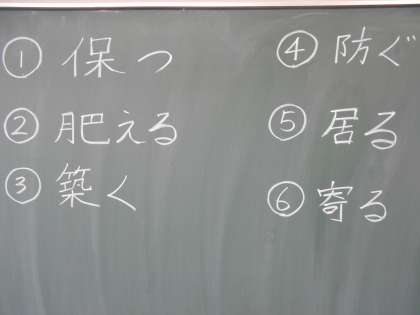 ① 保つ
② 肥える
③ 築く
④ 防ぐ
⑤ 居る
⑥ 寄る